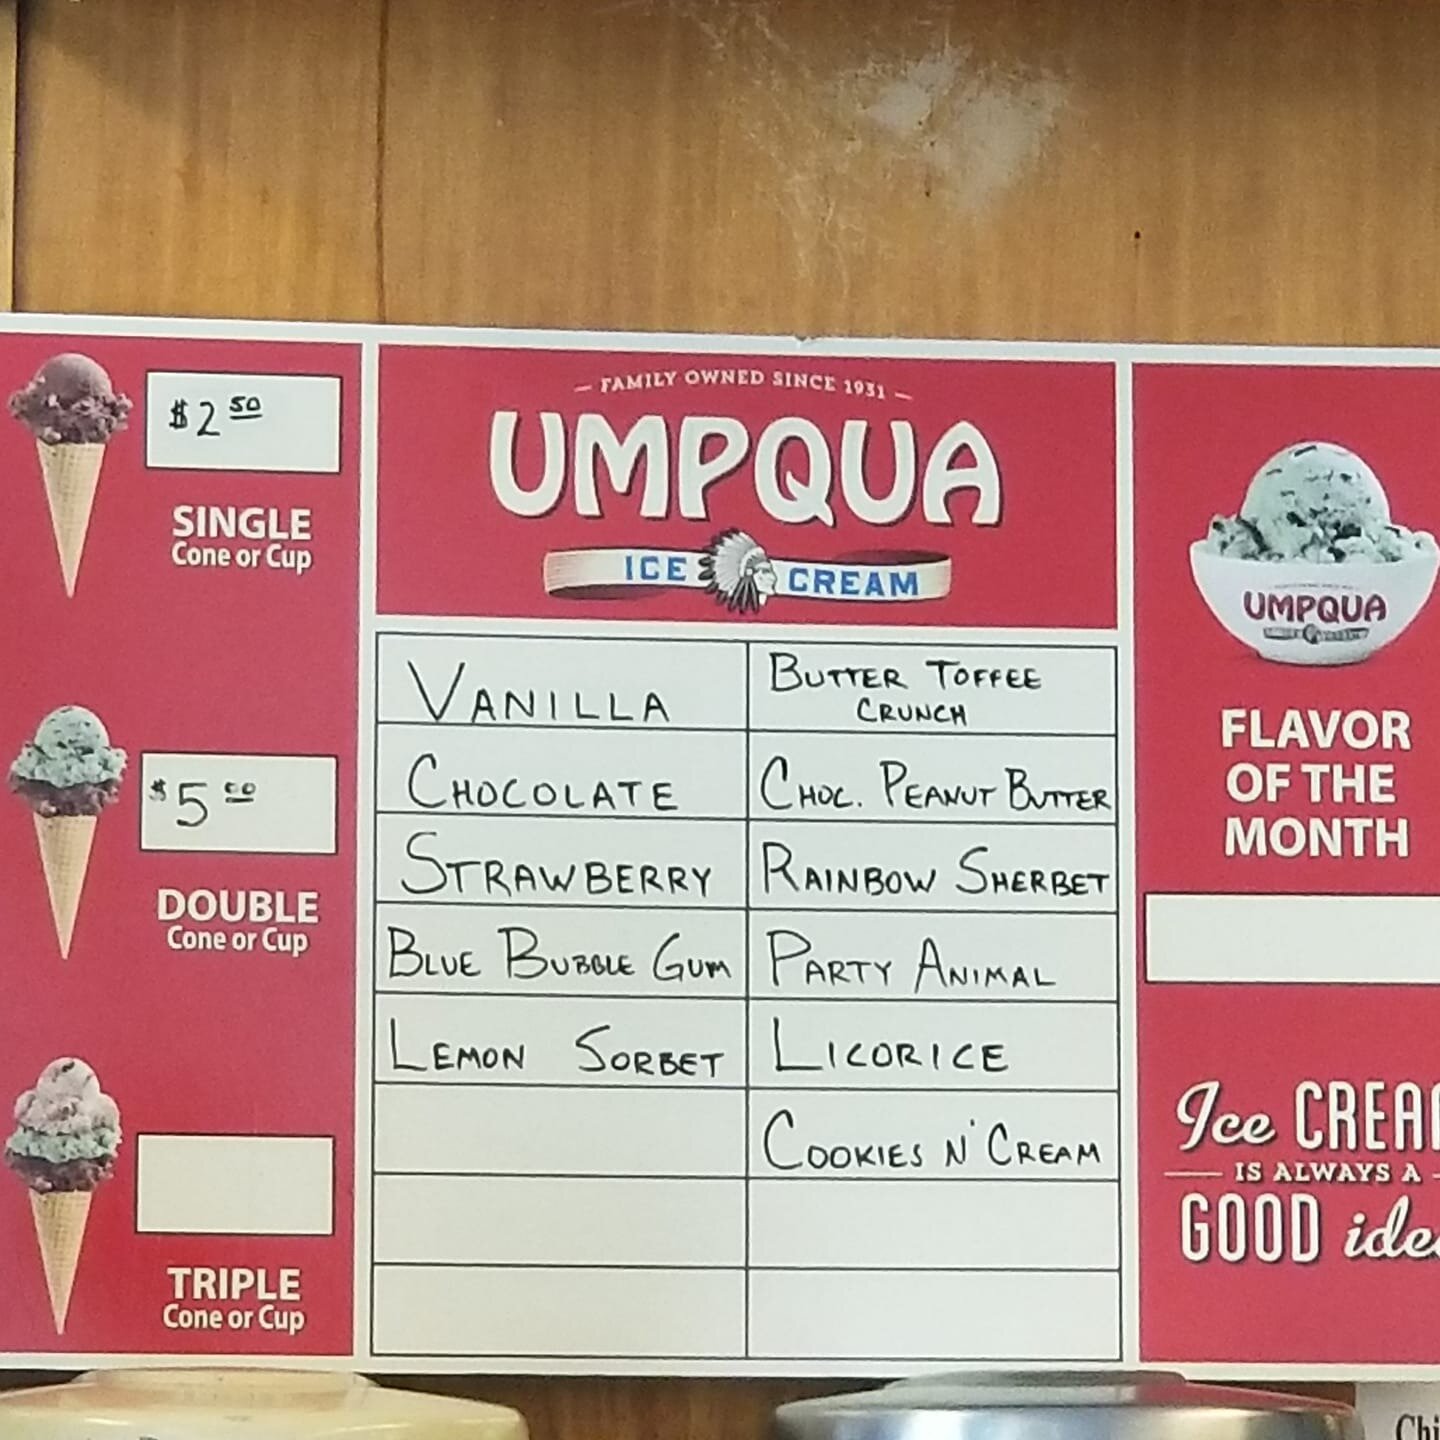 $2 50
SINGLE
Cone or Cup
$5 00
DOUBLE
Cone or Cup
TRIPLE
Cone or Cup
FAMILY OWNED SINCE 1931
UMPQUA
ICE CREAM
VANILLA
CHOCOLATE
STRAWBERRY
BLUE BUBBLE GUM
LEMON SORBET
BUTTER TOFFEE
CRUNCH
CHOC. PEANUT BUTTER
RAINBOW SHERBET
PARTY ANIMAL
LICORICE
COOKIES N' CREAM
UMPQUA
FLAVOR
OF THE
MONTH
Ice CREA
IS ALWAYS A
GOOD ide